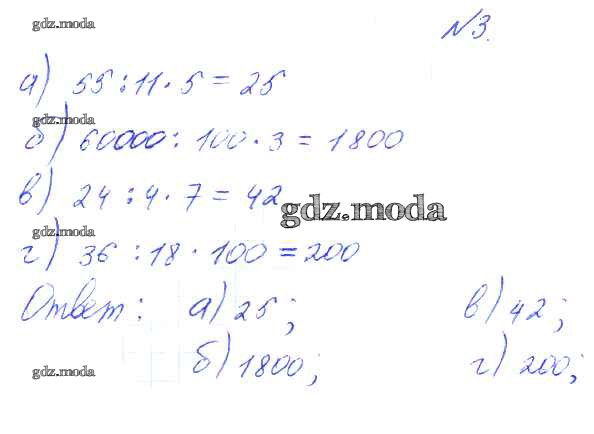 gdz.moda
№3.
а) 55 : 11 · 5 = 25
gdz.moda
б) 60000 : 100 · 3 = 1800
в) 24 : 4 · 7 = 42
gdz.moda
gdz.moda
г) 36 : 18 · 100 = 200
Ответ : а) 25 ; в) 42 ;
б) 1800 ; г) 200 ;
gdz.moda